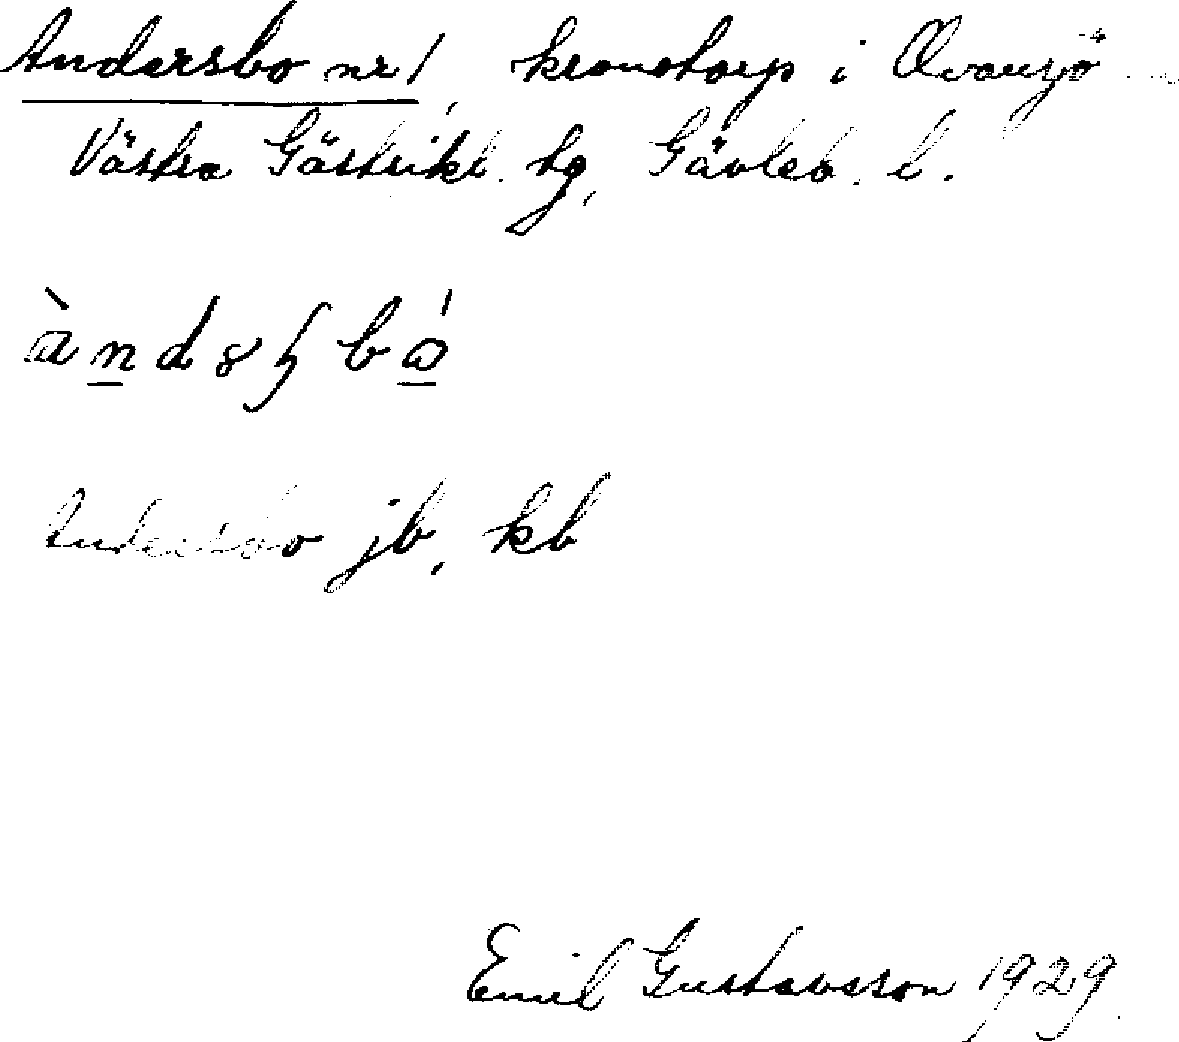 Andersbo nr 1, kronotorp i Ovansjö
Västra Gästrikl. tg, Gävleb. l.
Andersbo jb, kb
Emil Gustavsson 1929